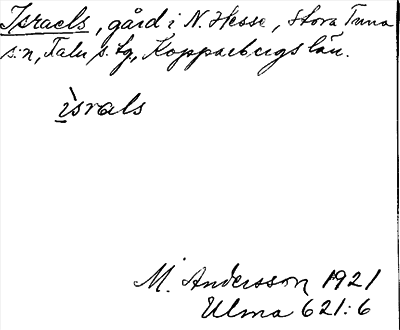 Israels, gård i N. Hesse, Stora Tuna
s:n, Falu s. tg, Kopparbergs län.
ìsrals
M. Andersson 1921
Ulma 621:6